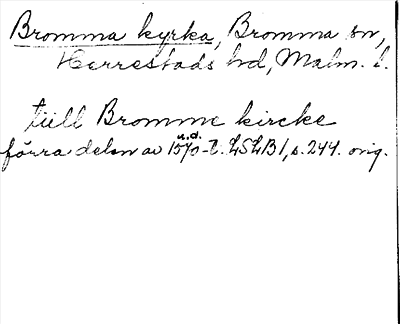 Bromma kyrka, Bromma sn,
Herrestads hd, Malm. l.
tüll Bromme kircke
u.d.
förra delen av 1570-t. LSLB1, s. 244. orig.